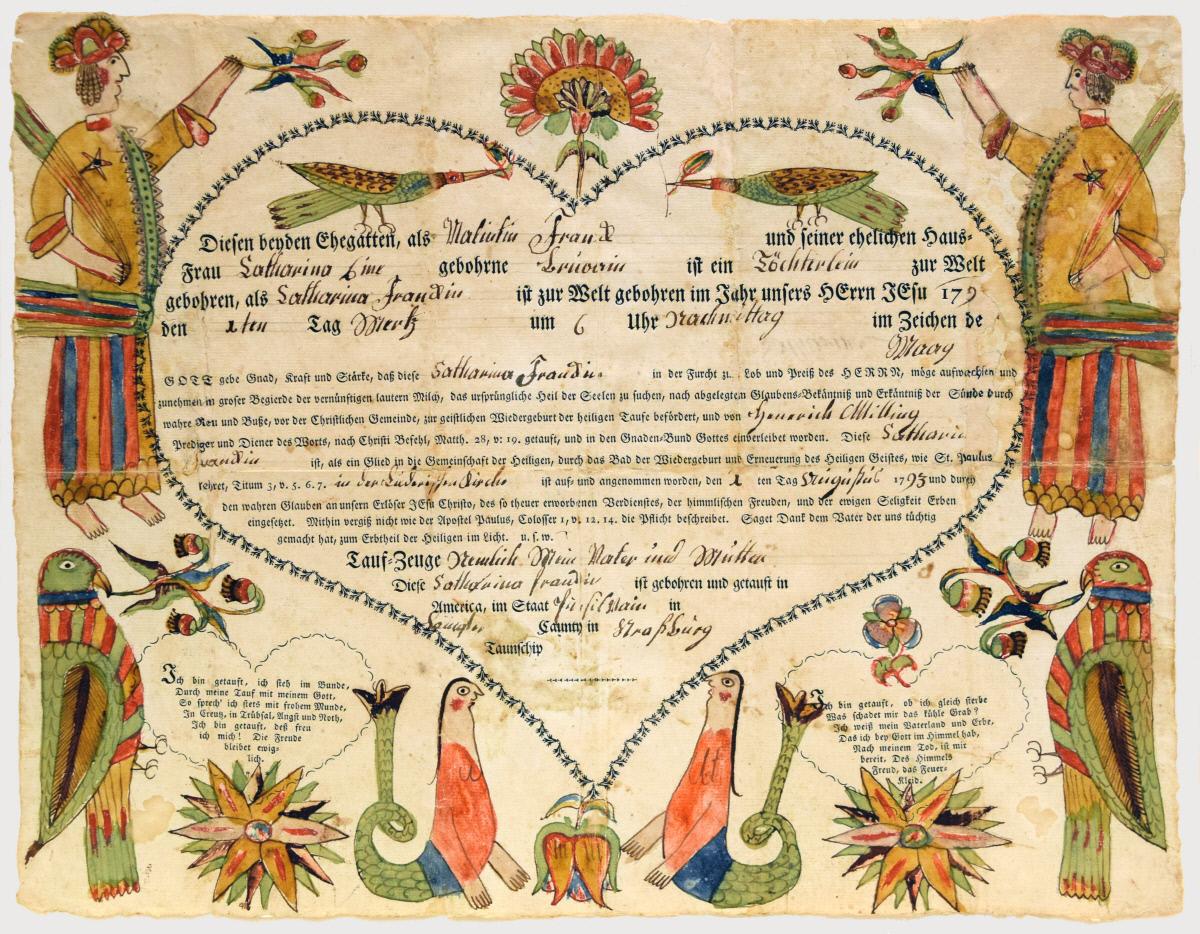 Diesen beyden Ehegatten, als Valentin Franck und seiner ehelichen Haus-
Frau Catharina Eine gebohrne ist ein Töchterlein zur Welt
gebohren, als Catharina Franckin ist zur Welt gebohren im Jahr unsers HErrn JEsu 179
den 1ten Tag Mertz um 6 Uhr Nachmittag im Zeichen de
Waag
GOTT gebe Gnad, Kraft und Stärke, daß diese Catharina Franckin in der Furcht zu Lob und Preiß des HERRN, möge aufwachsen und
zunehmen in groser Begierde der vernünftigen lautern Milch, das ursprüngliche Heil der Seelen zu suchen, nach abgelegten Glaubens-Bekäntniß und Erkäntniß der Sünde durch
wahre Reu und Buße, vor der Christlichen Gemeinde, zur geistlichen Wiedergeburt der heiligen Taufe befördert, und von Henerich Milling
Prediger und Diener des Worts, nach Christi Befehl, Matth. 28, v: 19. getauft, und in den Gnaden-Bund Gottes einverleibet worden. Diese Catharin
Franckin ist, als ein Glied in die Gemeinschaft der Heiligen, durch das Bad der Wiedergeburt und Erneuerung des Heiligen Geistes, wie St. Paulus
lehret, Titum 3, v. 5. 6. 7. in der Kirche ist auf- und angenommen worden, den 1 ten Tag Augustus 1795 und durch
den wahren Glauben an unsern Erlöser JEsu Christo, des so theuer erworbenen Verdienstes, der himmlischen Freuden, und der ewigen Seligkeit Erben
eingesetzt. Mithin vergiß nicht wie der Apostel Paulus, Colosser 1, v. 12. 14. die Pflicht beschreibet. Saget Dank dem Vater der uns tüchtig
gemacht hat, zum Erbtheil der Heiligen im Licht. u. s. w.
Tauf-Zeuge Nemlich Mein Vater und Mutter
Diese Catharina Franckin ist gebohren und getauft in
America, im Staat in
County in Straßburg
Taunschip
Ich bin getauft, ich steh im Bunde,
Durch meine Tauf mit meinem Gott,
So sprech' ich stets mit frohem Munde,
In Creutz, in Trübsal, Angst und Noth,
Ich bin getauft, deß freu
ich mich! Die Freude
bleibet ewig-
lich.
Ich bin getauft, ob ich gleich sterbe
Was schadet mir das kühle Grab?
Ich weiß mein Vaterland und Erbe,
Das ich bey Gott im Himmel hab,
Nach meinem Tod, ist mir
bereit. Des Himmels
Freud, das Feuer-
Kleid.